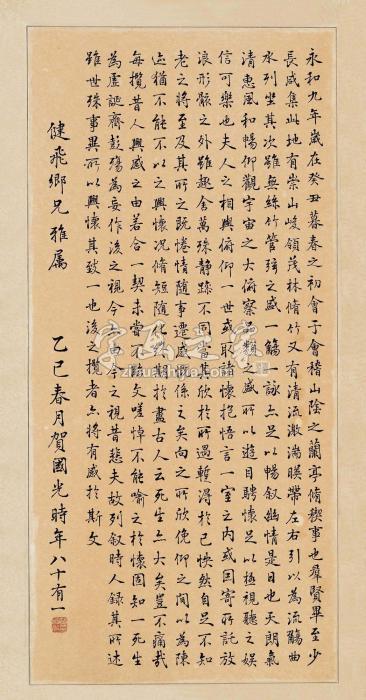 永和九年歲在癸丑暮春之初會于會稽山陰之蘭亭脩稧事也羣賢畢至少
長咸集此地有崇山峻領茂林脩竹又有清流激湍暎帶左右引以為流觴曲
水列坐其次雖無絲竹管弦之盛一觴一詠亦足以暢叙幽情是日也天朗氣
清惠風和暢仰觀宇宙之大俯察品類之盛所以遊目騁懷足以極視聽之娛
信可樂也夫人之相與俯仰一世或取諸懷抱悟言一室之內或因寄所託放
浪形骸之外雖趣舍萬殊靜躁不同當其欣於所遇暫得於己怏然自足不知
老之將至及其所之既惓情隨事遷感慨係之矣向之所欣俛仰之間以為陳
迹猶不能不以之興懷況脩短隨化終期於盡古人云死生亦大矣豈不痛哉
每攬昔人興感之由若合一契未嘗不臨文嗟悼不能喻之於懷固知一死生
為虛誕齊彭殤為妄作後之視今亦由今之視昔悲夫故列叙時人錄其所述
雖世殊事異所以興懷其致一也後之攬者亦將有感於斯文
健飛鄉兄雅屬 乙巳春月賀國光時年八十有一